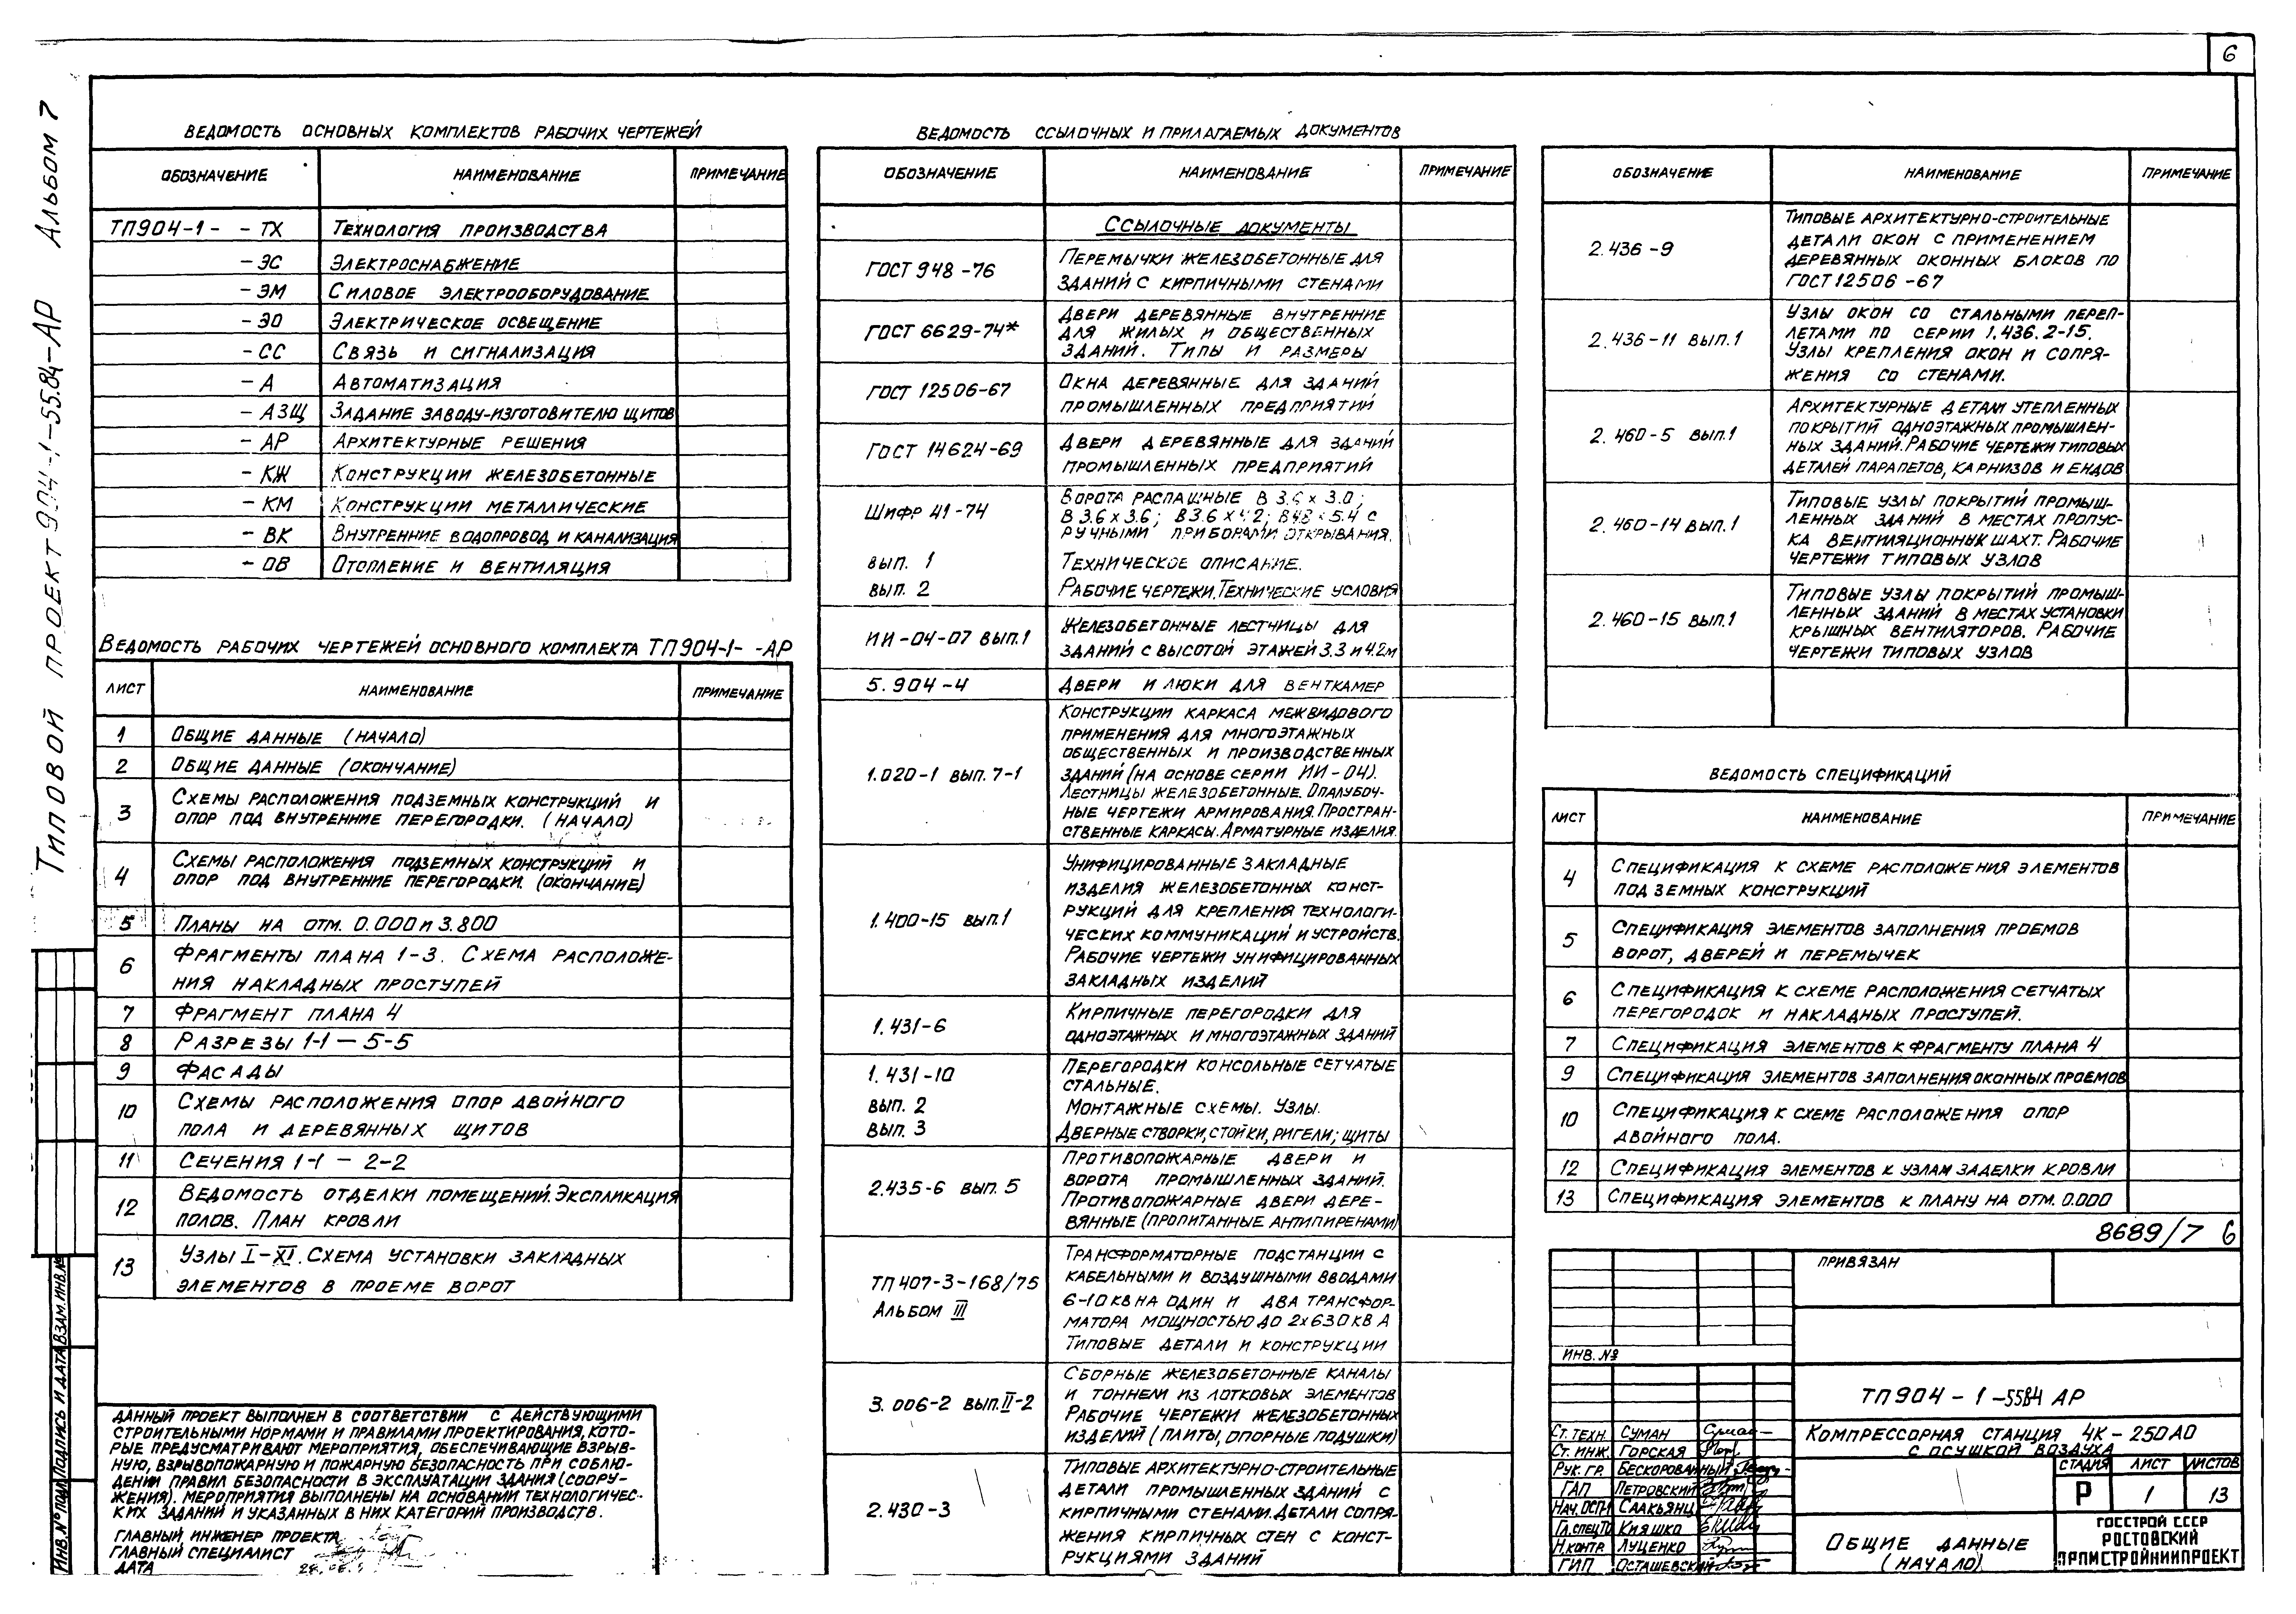 6
Типовой проект 904-1-55.84-АР Альбом 7
Ведомость основных комплектов рабочих чертежей
Обозначение Наименование Примечание
ТП904-1- -ТХ Технология производства
-ЭС Электроснабжение
-ЭМ Силовое электрооборудование
-ЭО Электрическое освещение
-СС Связь и сигнализация
-А Автоматизация
-АЗЩ Задание заводу-изготовителю щитов
-АР Архитектурные решения
-КЖ Конструкции железобетонные
-КМ Конструкции металлические
-ВК Внутренние водопровод и канализация
-ОВ Отопление и вентиляция
Ведомость рабочих чертежей основного комплекта ТП904-1- -АР
Лист Наименование Примечание
1 Общие данные (начало)
2 Общие данные (окончание)
3 Схемы расположения подземных конструкций и
опор под внутренние перегородки. (начало)
4 Схемы расположения подземных конструкций и
опор под внутренние перегородки. (окончание)
5 Планы на отм. 0.000 и 3.800
6 Фрагменты плана 1-3. Схема расположе-
ния накладных проступей
7 Фрагмент плана 4
8 Разрезы 1-1 — 5-5
9 Фасады
10 Схемы расположения опор двойного
пола и деревянных щитов
11 Сечения 1-1 — 2-2
12 Ведомость отделки помещений. Экспликация
полов. План кровли
13 Узлы I-XI. Схема установки закладных
элементов в проеме ворот
Данный проект выполнен в соответствии с действующими
строительными нормами и правилами проектирования, кото-
рые предусматривают мероприятия, обеспечивающие взрыв-
ную, взрывопожарную и пожарную безопасность при соблю-
дении правил безопасности в эксплуатации здания (соору-
жения). Мероприятия выполнены на основании технологичес-
ких заданий и указанных в них категорий производств.
Главный инженер проекта
Главный специалист
Дата
Инв.№подл. Подпись и дата Взам.инв.№
Ведомость ссылочных и прилагаемых документов
Обозначение Наименование Примечание
Ссылочные документы
ГОСТ 948-76 Перемычки железобетонные для
зданий с кирпичными стенами
ГОСТ 6629-74* Двери деревянные внутренние
для жилых и общественных
зданий. Типы и размеры
ГОСТ 12506-67 Окна деревянные для зданий
промышленных предприятий
ГОСТ 14624-69 Двери деревянные для зданий
промышленных предприятий
Шифр 41-74 Ворота распашные В 3.6 х 3.0;
В 3.6 х 3.6; В3.6 х 4.2; В4.8 х 5.4 с
ручными приборами открывания.
вып. 1 Техническое описание.
вып. 2 Рабочие чертежи. Технические условия
ИИ-04-07 вып.1 Железобетонные лестчицы для
зданий с высотой этажей 3.3 и 4.2м
5.904-4 Двери и люки для венткамер
1.020-1 вып. 7-1 Конструкции каркаса межвидового
применения для многоэтажных
общественных и производственных
зданий (на основе серии ИИ-04).
Лестницы железобетонные. Опалубоч-
ные чертежи армирования. Простран-
ственные каркасы. Арматурные изделия.
1.400-15 вып.1 Унифицированные закладные
изделия железобетонных конст-
рукций для крепления технологи-
ческих коммуникаций и устройств.
Рабочие чертежи унифицированных
закладных изделий
1.431-6 Кирпичные перегородки для
одноэтажных и многоэтажных зданий
1.431-10 Перегородки консольные сетчатые
стальные.
вып. 2 Монтажные схемы. Узлы.
вып. 3 Дверные створки, стойки, ригели; щиты
2.435-6 вып. 5 Противопожарные двери и
ворота промышленных зданий.
Противопожарные двери дере-
вянные (пропитанные антипиренами)
ТП407-3-168/75
Альбом III
Трансформаторные подстанции с
кабельными и воздушными вводами
6-10 кв на один и два трансфор-
матора мощностью до 2х630 кв А
Типовые детали и конструкции
3.006-2 вып.II-2 Сборные железобетонные каналы
и тоннели из лотковых элементов
Рабочие чертежи железобетонных
изделий (плиты, опорные подушки)
2.430-3 Типовые архитектурно-строительные
детали промышленных зданий с
кирпичными стенами. Детали сопря-
жения кирпичных стен с конст-
рукциями зданий
Обозначение Наименование Примечание
2.436-9 Типовые архитектурно-строительные
детали окон с применением
деревянных оконных блоков по
ГОСТ 12506-67
2.436-11 вып.1 Узлы окон со стальными переп-
летами по серии 1.436.2-15.
Узлы крепления окон и сопря-
жения со стенами.
2.460-5 вып.1 Архитектурные детали утепленных
покрытий одноэтажных промышлен-
ных зданий. Рабочие чертежи типовых
деталей парапетов, карнизов и ендов
2.460-14 вып.1 Типовые узлы покрытий промыш-
ленных зданий в местах пропус-
ка вентиляционных шахт. Рабочие
чертежи типовых узлов
2.460-15 вып.1 Типовые узлы покрытий промыш-
ленных зданий в местах установки
крышных вентиляторов. Рабочие
чертежи типовых узлов
Ведомость спецификаций
Лист Наименование Примечание
4 Спецификация к схеме расположения элементов
подземных конструкций
5 Спецификация элементов заполнения проемов
ворот, дверей и перемычек
6 Спецификация к схеме расположения сетчатых
перегородок и накладных проступей.
7 Спецификация элементов к фрагменту плана 4
9 Спецификация элементов заполнения оконных проемов
10 Спецификация к схеме расположения опор
двойного пола.
12 Спецификация элементов к узлам заделки кровли
13 Спецификация элементов к плану на отм. 0.000
8689/7 6
Привязан
Инв. №
ТП904-1-5584 АР
Компрессорная станция 4К-250А0
с осушкой воздуха
Ст.техн. Суман
Ст.инж. Горская
Рук.гр. Бескорованный
ГАП Петровский
Нач.ОСП1 Саакьянц
Гл.спец.ТО Кияшко
Н.контр. Луценко
ГИП Осташевский
Стадия Лист Листов
Р 1 13
Общие данные
(начало)
Госстрой СССР
Ростовский
Промстройниипроект